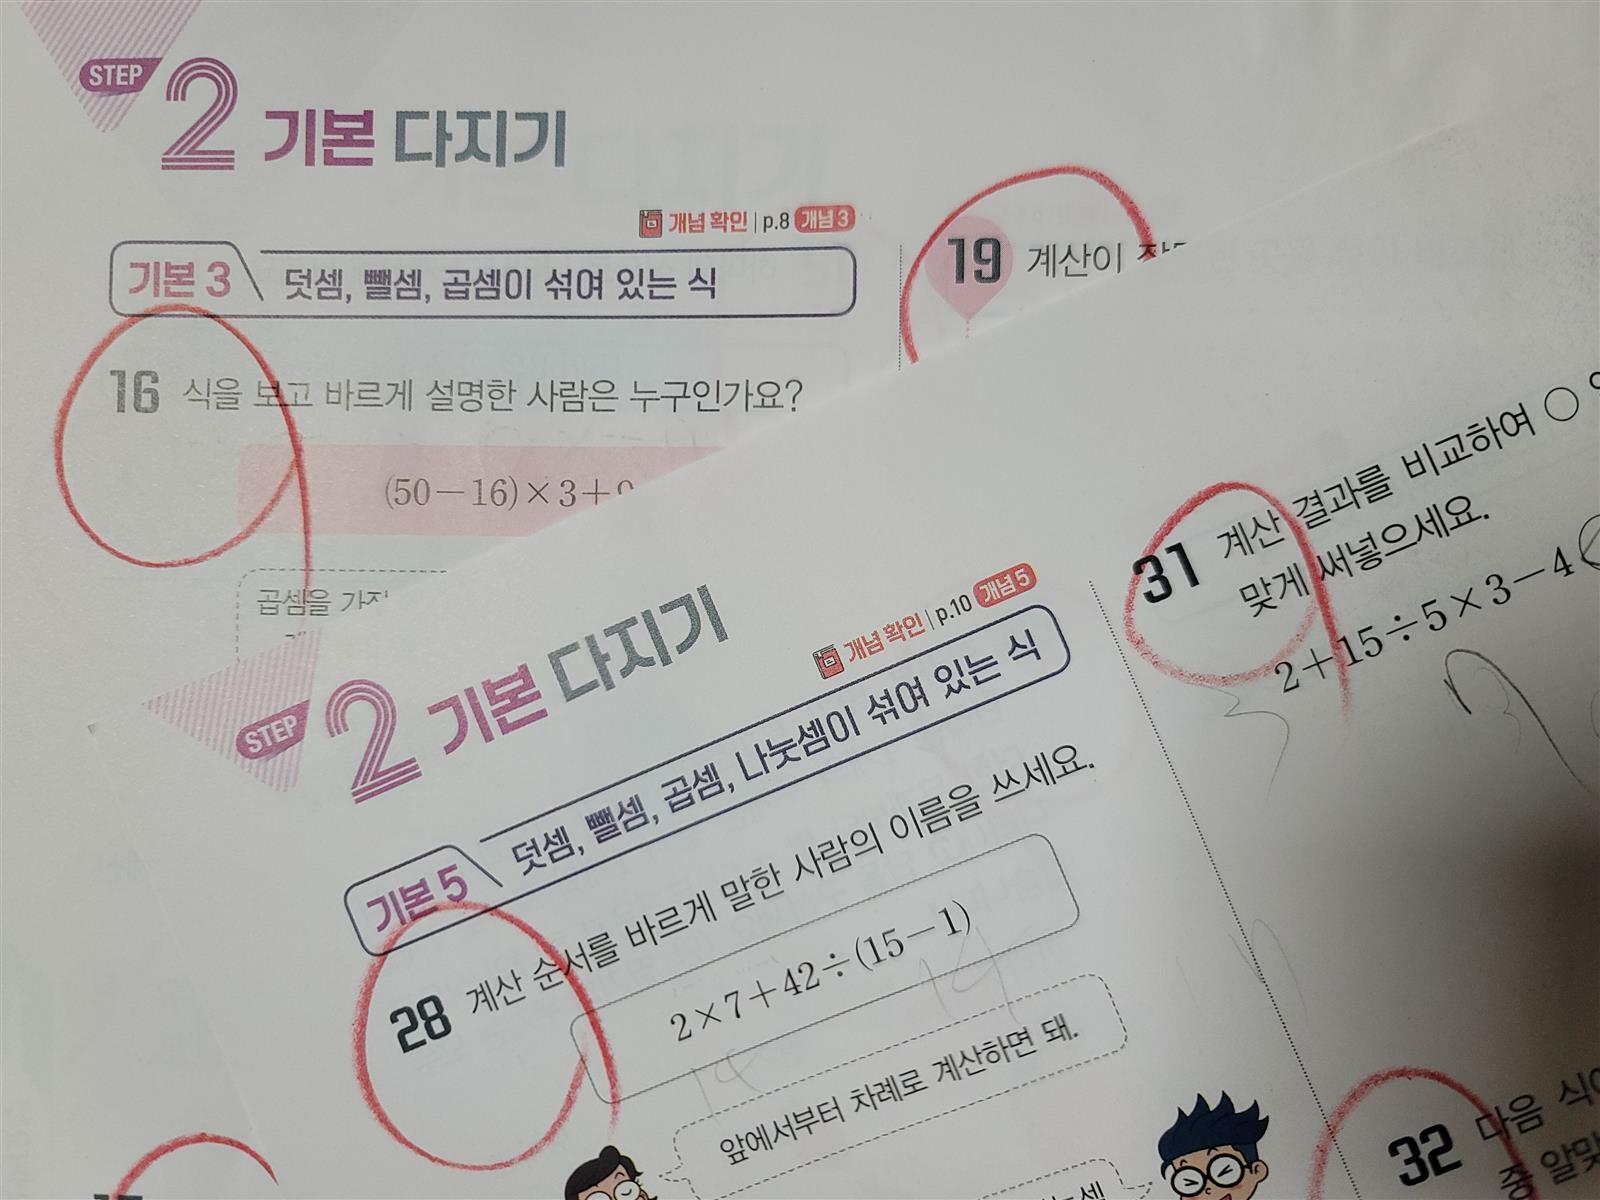 STEP 2 기본 다지기
개념 확인 | p.8 개념 3
기본 3 덧셈, 뺄셈, 곱셈이 섞여 있는 식
16 식을 보고 바르게 설명한 사람은 누구인가요?
(50−16)×3+
곱셈을
19 계산이
STEP 2 기본 다지기
개념 확인 | p.10 개념 5
기본 5 덧셈, 뺄셈, 곱셈, 나눗셈이 섞여 있는 식
28 계산 순서를 바르게 말한 사람의 이름을 쓰세요.
2×7+42÷(15−1)
14
14
앞에서부터 차례로 계산하면 돼.
31 계산 결과를 비교하여 ○
맞게 써넣으세요.
2+15÷5×3−4
3
9
32 다음
중